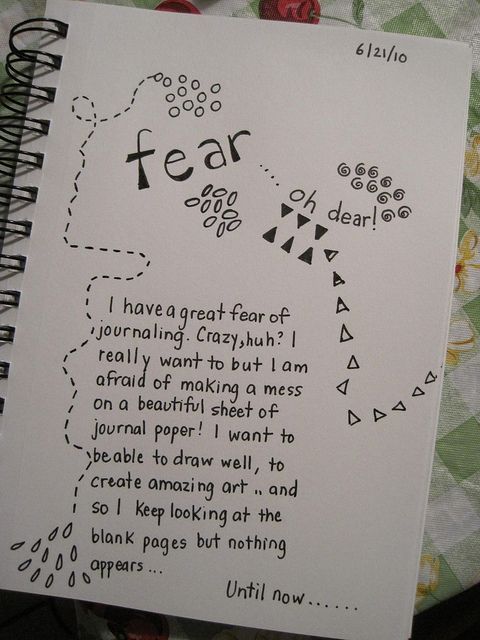 6/21/10
fear...
oh dear!
I have a great fear of
journaling. Crazy, huh? I
really want to but I am
afraid of making a mess
on a beautiful sheet of
journal paper! I want to
be able to draw well, to
create amazing art .. and
so I keep looking at the
blank pages but nothing
appears...
Until now......